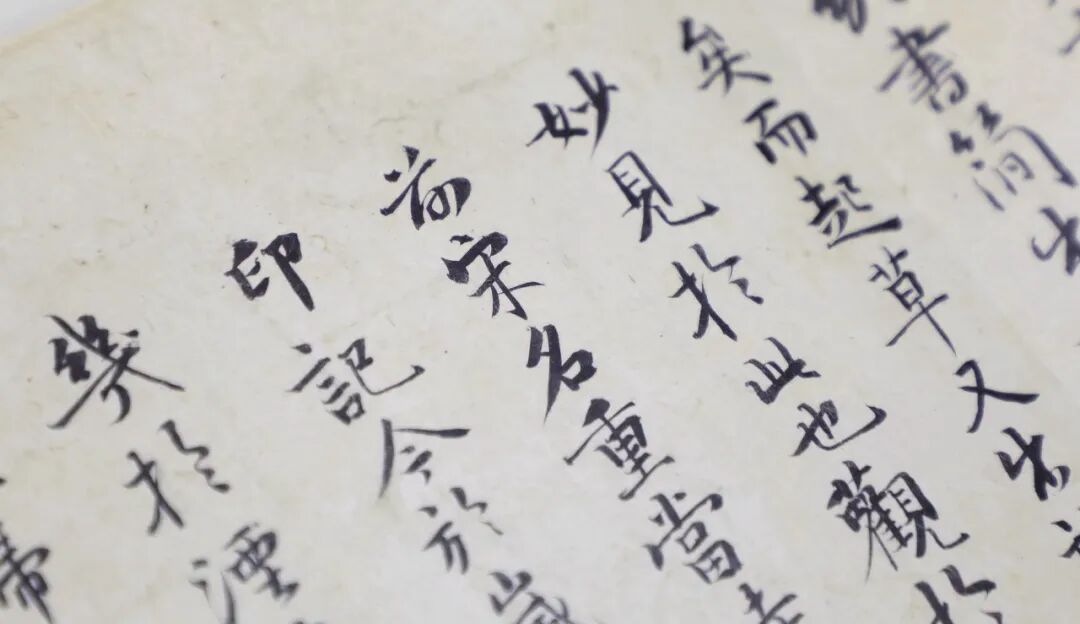 書簡出
矣而起草又出
妙見於此也觀於
前宋名重當
印記今於歲
幾於湮